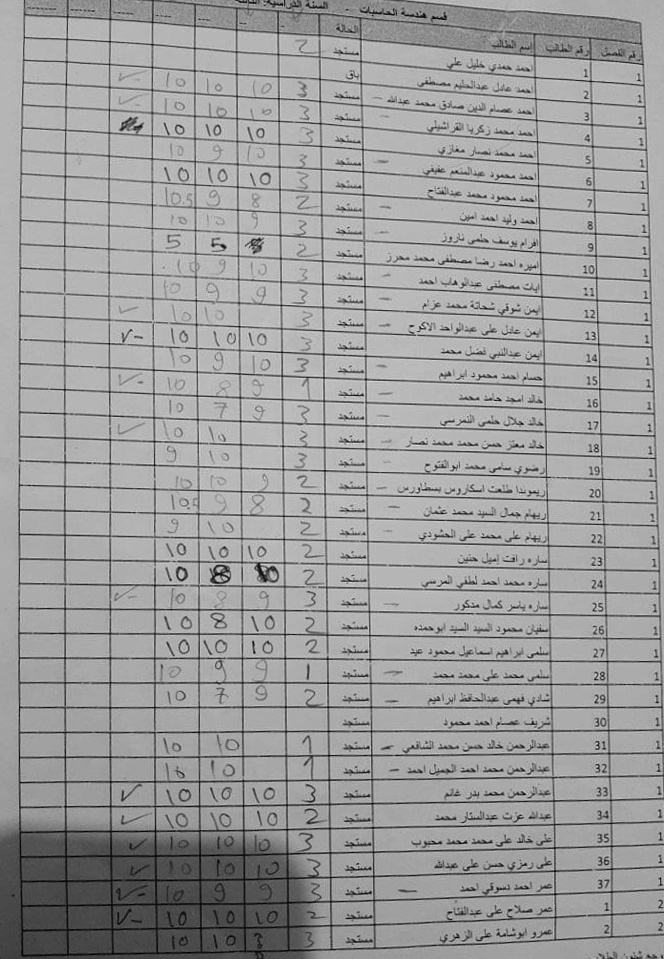 قسم هندسة الحاسبات - السنة الدراسية:
رقم الفصل رقم الطالب اسم الطالب الحالة
1 1 احمد حمدي خليل علي مستجد 2
1 2 احمد عادل عبدالحليم مصطفى باق
1 3 احمد عصام الدين صادق محمد عبدالله - مستجد 3 10 10 10 ✓
1 4 احمد محمد زكريا القراشيلي - مستجد 3 10 10 10 ✓
1 5 احمد محمد نصار مغازي مستجد 3 10 10 10
1 6 احمد محمود عبدالمنعم عفيفي - مستجد 3 10 9 10
1 7 احمد محمود محمد عبدالفتاح مستجد 3 10 10 10
1 8 احمد وليد احمد امين - مستجد 2 8 9 10.5
1 9 افرام يوسف حلمى ناروز - مستجد 3 9 10 10
1 10 اميره احمد رضا مصطفى محمد محرز مستجد 2 5 5
1 11 ايات مصطفى عبدالوهاب احمد - مستجد 3 10 9 10
1 12 ايمن شوقي شحاتة محمد عزام - مستجد 3 9 9 10
1 13 ايمن عادل على عبدالواحد الاكوح - مستجد 3 10 10 ✓
1 14 ايمن عبدالنبي فضل محمد مستجد 3 10 10 10 ✓
1 15 حسام احمد محمود ابراهيم - مستجد 3 10 9 10
1 16 خالد امجد حامد محمد - مستجد 1 9 8 10 ✓
1 17 خالد جلال حلمى النمرسي - مستجد 3 9 7 10
1 18 خالد معتز حسن محمد محمد نصار - مستجد 3 10 10 ✓
1 19 رضوي سامى محمد ابوالفتوح - مستجد 3 10 9
1 20 ريموندا طلعت اسكاروس بسطاورس - مستجد 2 9 10 10
1 21 ريهام جمال السيد محمد عثمان - مستجد 2 8 9 10.5
1 22 ريهام على محمد على الحشودي - مستجد 2 10 9
1 23 ساره رافت إميل حنين مستجد 2 10 10 10
1 24 ساره محمد احمد لطفي المرسي مستجد 2 10 8 10
1 25 ساره ياسر كمال مدكور - مستجد 3 9 8 10 ✓
1 26 سفيان محمود السيد السيد ابوحمده مستجد 2 10 8 10
1 27 سلمى ابراهيم اسماعيل محمود عيد مستجد 2 10 10 10
1 28 سلمى محمد على محمد محمد - مستجد 1 9 9 10
1 29 شادي فهمى عبدالحافظ ابراهيم - مستجد 2 9 7 10
1 30 شريف عصام احمد محمود مستجد
1 31 عبدالرحمن خالد حسن محمد الشافعي - مستجد 1 10 10
1 32 عبدالرحمن محمد احمد الجميل احمد - مستجد 1 10 10
1 33 عبدالرحمن محمد بدر غانم مستجد 3 10 10 10 ✓
1 34 عبدالله عزت عبدالستار محمد مستجد 2 10 10 10 ✓
1 35 على خالد على محمد محمد محبوب مستجد 3 10 10 10 ✓
1 36 على رمزي حسن على عبدالله مستجد 3 10 10 10 ✓
1 37 عمر احمد دسوقي احمد - مستجد 3 9 9 10 ✓
2 1 عمر صلاح على عبدالفتاح مستجد 2 10 10 10 ✓
2 2 عمرو ابوشامة على الزهري مستجد 3 3 10 10